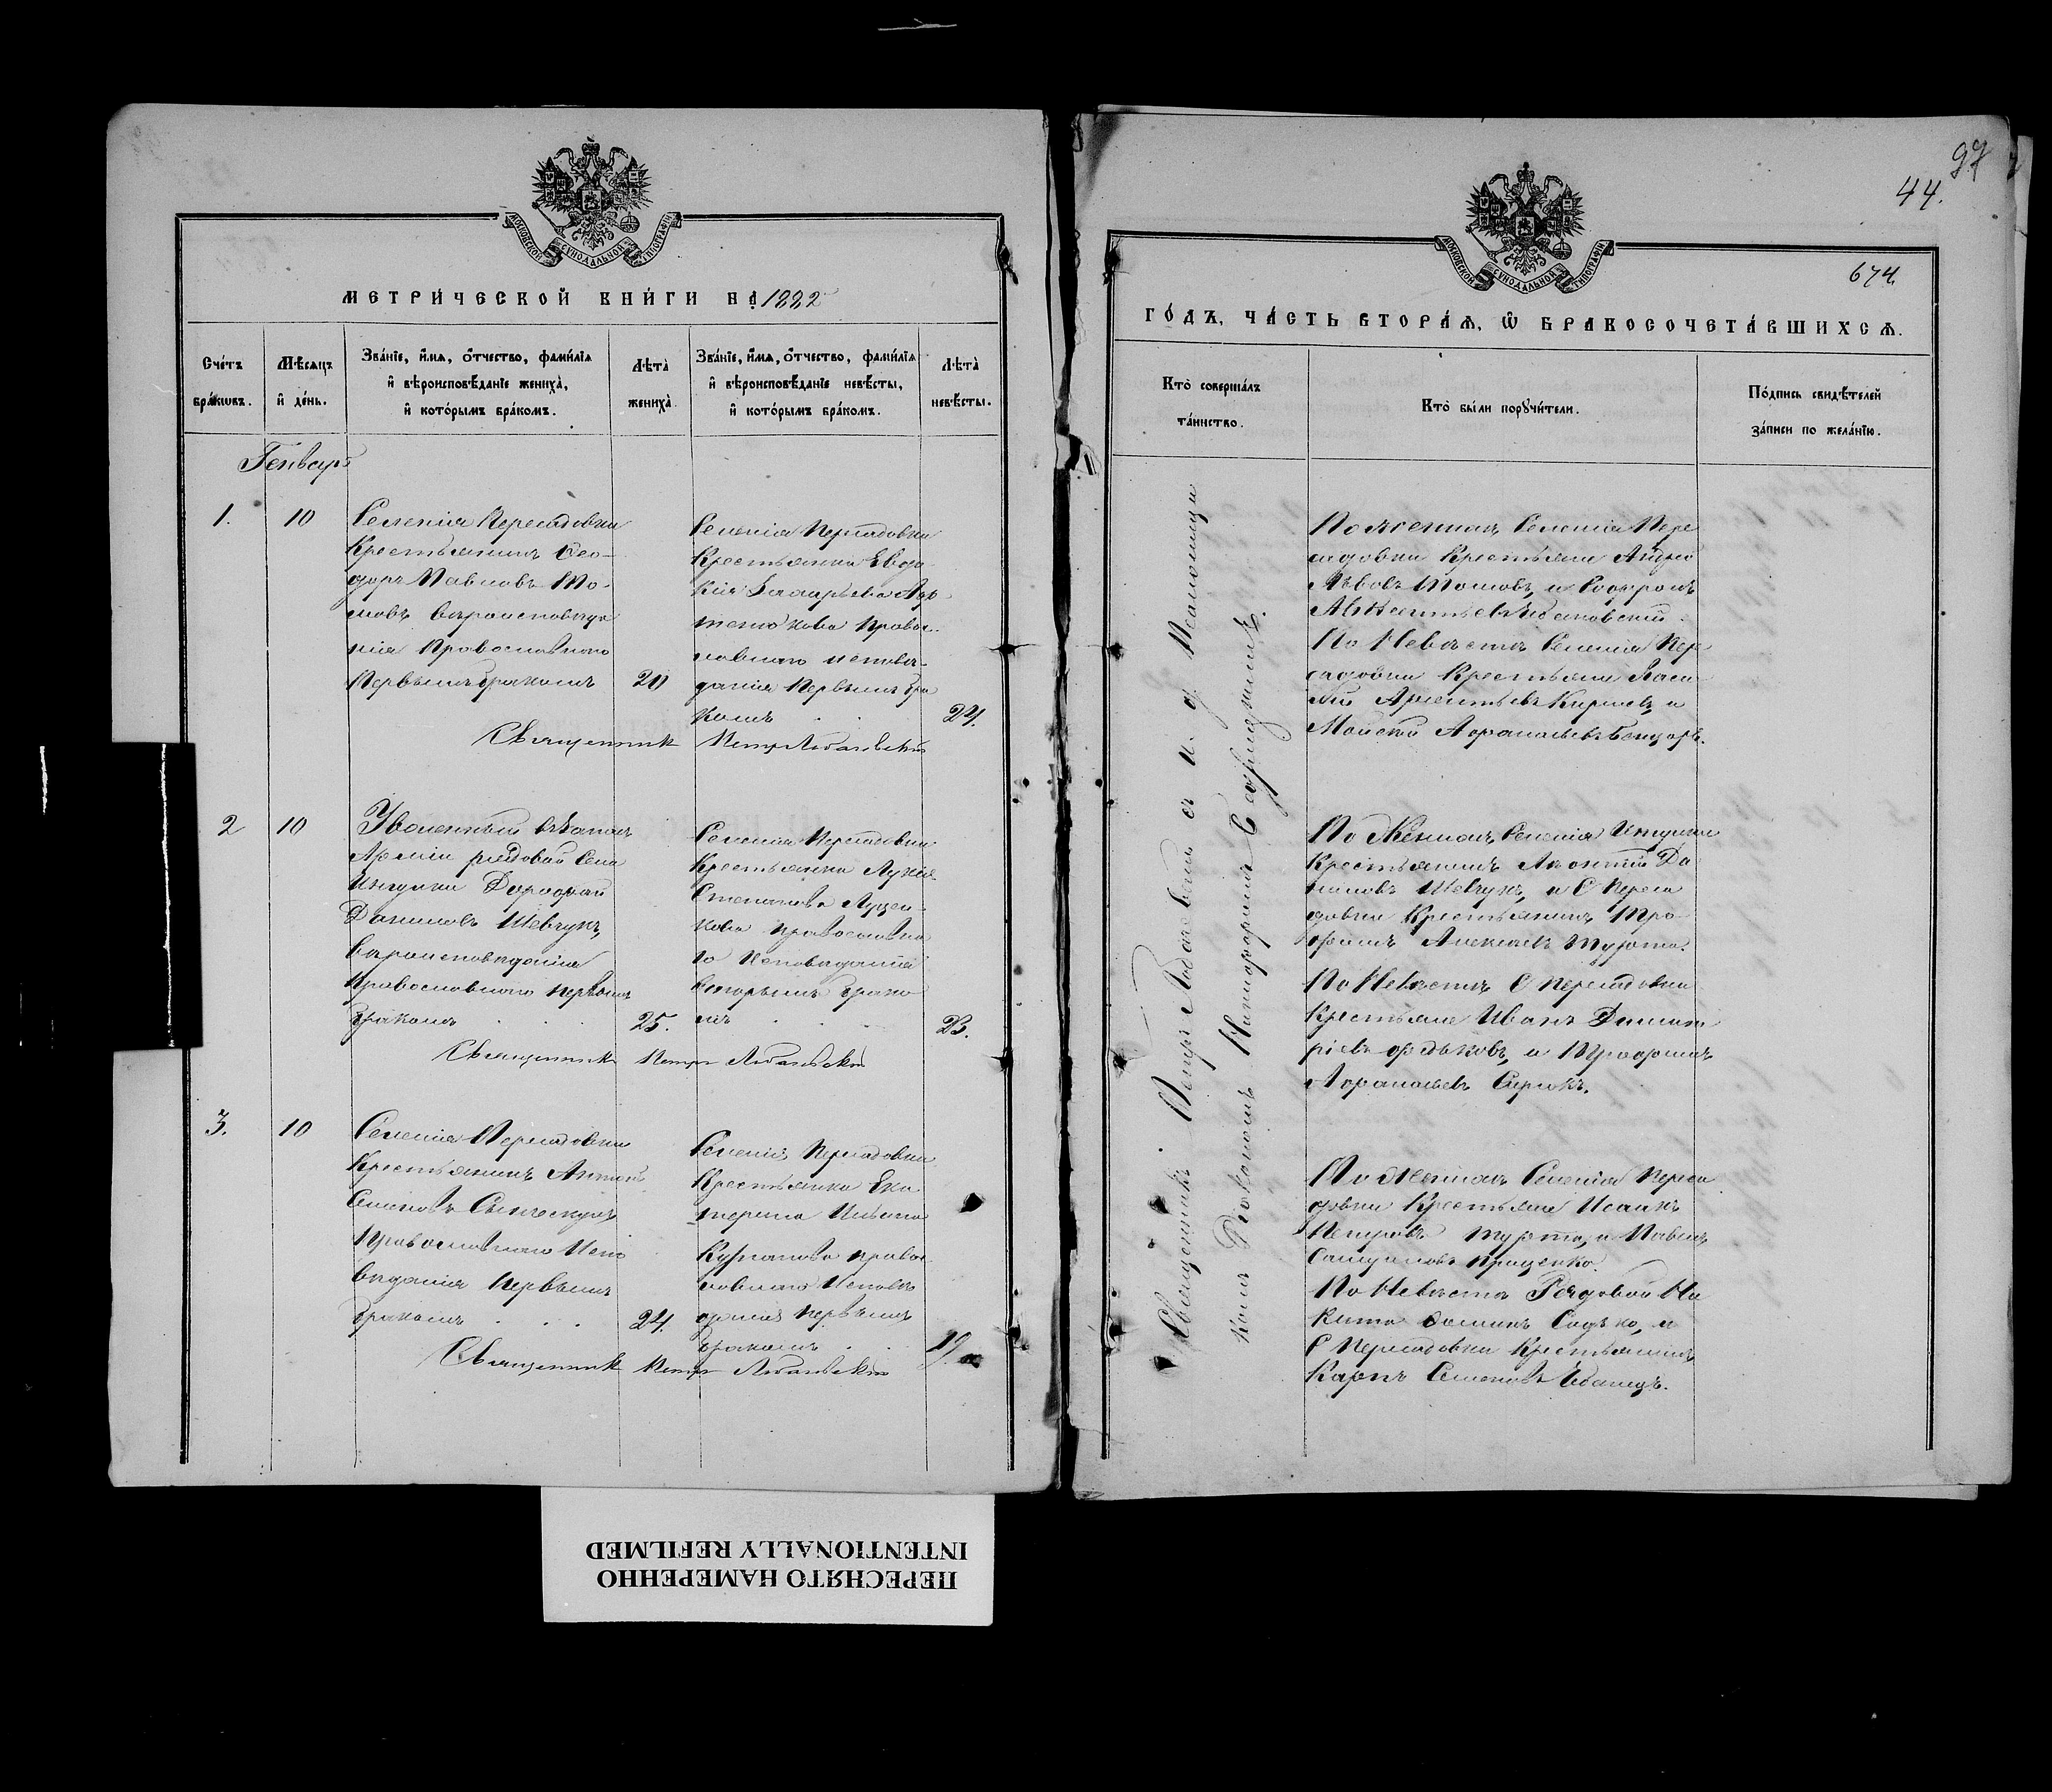 МОСКОВСКОЙ СУНОДАЛЬНОЙ ТИПОГРАФІИ
МЕТРИ́ЧЕСКОЙ КНИ́ГИ НА 1882
Сче́тъ бра́кѡвъ.
Мѣ́сяцъ и҆ де́нь.
Зва́нїе, и҆́мѧ, ѻ҆́тчество, фами́лїѧ и҆ вѣроисповѣ́данїе жениха̀, и҆ кото́рымъ бра́комъ.
Лѣ́та жениха̀.
Зва́нїе, и҆́мѧ, ѻ҆́тчество, фами́лїѧ и҆ вѣроисповѣ́данїе невѣ́сты, и҆ кото́рымъ бра́комъ.
Лѣ́та невѣ́сты.
Генварь
1.
10
Селенія Пересадовки
Крестьянинъ Ѳео-
доръ Павловъ То-
мовъ вѣроисповѣда
нія Православнаго
Первымъ бракомъ
20
Селенія Пересадовки
Крестьянка Евдо
кія Захарьева
Правос
лавнаго исповѣ-
данія Первымъ бра
комъ
24.
Священникъ Петръ
2
10
Уволенный въ запасъ
Арміи рядовой Села
Дорофей
Даниловъ Шевчукъ,
вѣроисповѣданія
Православнаго первымъ
бракомъ
25.
Селенія Пересадовки
Крестьянка Лукія
Степанова Луцен
кова православна
го Исповѣданія
вторымъ брако
мъ
23.
Священникъ Петръ
3.
10
Селенія Пересадовки
Крестьянинъ Антонъ
Семеновъ
Православнаго Испо
вѣданія Первымъ
бракомъ
24.
Селенія Пересадовки
Крестьянка Ека
терина
правос
лавнаго Исповѣ
данія первымъ
бракомъ
19.
Священникъ Петръ
97
44.
МОСКОВСКОЙ СУНОДАЛЬНОЙ ТИПОГРАФІИ
674
ГО́ДЪ, ЧА́СТЬ ВТОРА́Ѧ, Ѡ҆ БРАКОСОЧЕТА́ВШИХСѦ.
Кто̀ соверша́лъ та́инство.
Кто̀ бы́ли порꙋчи́тели.
По́дпись свидѣ́телей за́писи по жела́нїю.
Священникъ Петръ съ и. д. Псаломщи
ка Никифоромъ
По Женихѣ, Селенія Пере
садовки Крестьяне Андрей
Львовъ Томовъ, и Софронъ
По Невѣстѣ Селенія Пере
садовки Крестьяне Васи
лій и
Мойсей
По Женихѣ, Селенія
Крестьянинъ Леонтій Да
ниловъ Шевчукъ, и С Переса
довки Крестьянинъ Тро-
фимъ Алексѣевъ Турта.
По Невѣстѣ С Пересадовки
Крестьяне Иванъ Димит
ріевъ и Трофимъ
По Женихѣ Селенія Переса
довки Крестьяне Исаакъ
Петровъ Турта, и Павелъ
Проценко.
По Невѣстѣ Рядовой Ни
кита Ѳоминъ Садько, и
С Пересадовки Крестьянинъ
Карпъ Семеновъ
ПЕРЕСНЯТО НАМЕРЕННО
INTENTIONALLY REFILMED